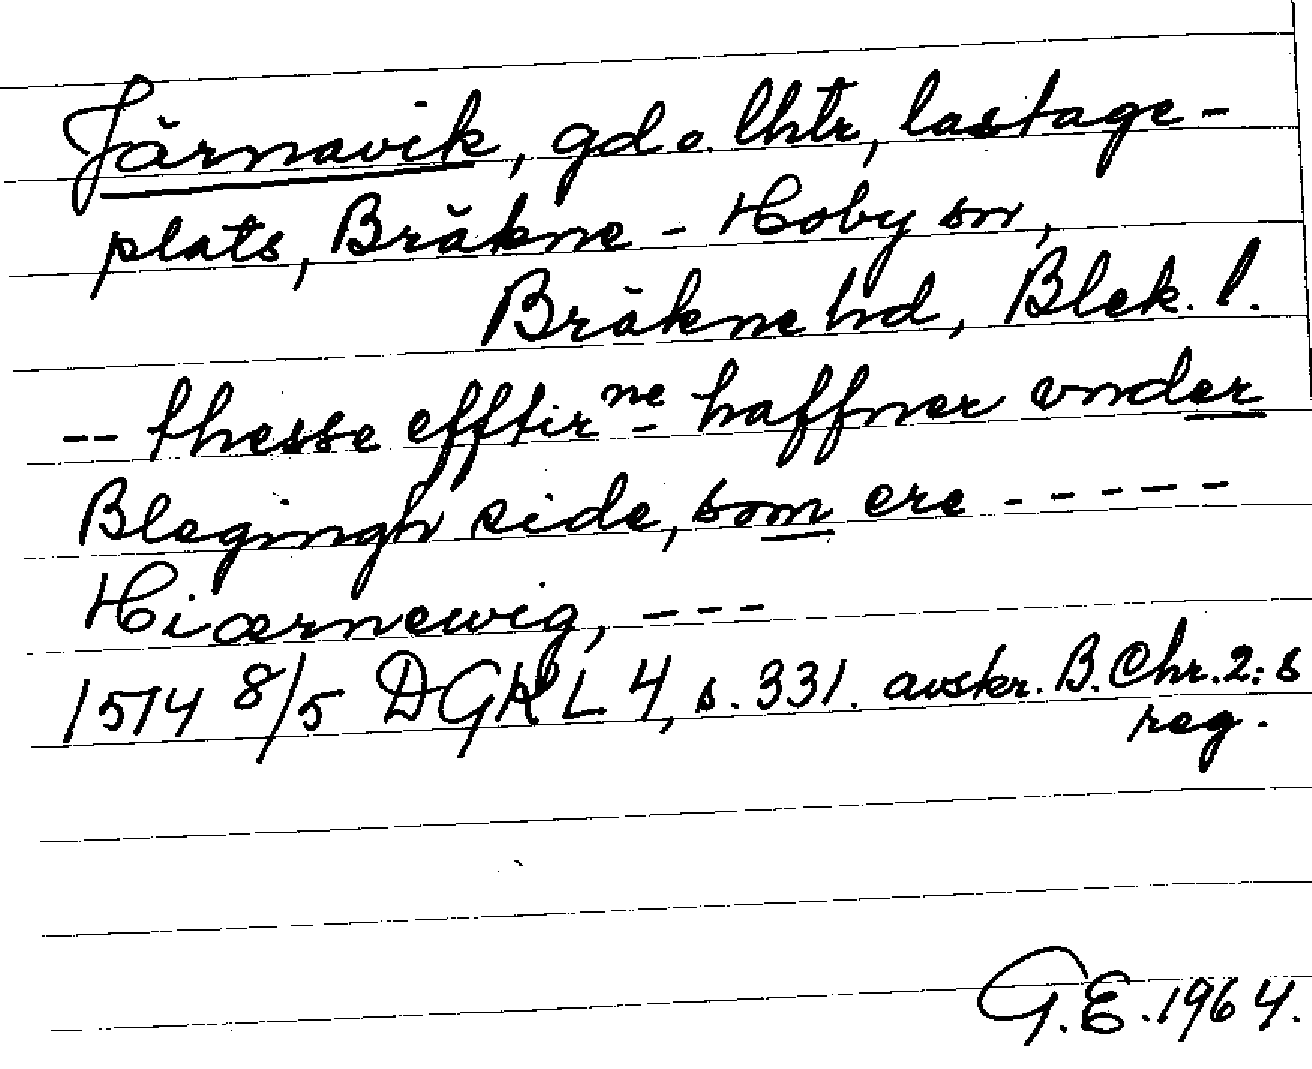 Järnavik, gd o. lhtr, lastage-
plats, Bräkne-Hoby sn,
Bräkne hd, Blek. l.
-- thesse efftir ne haffner vnder
Blegingh side, som ere -----
Hiærnewig, ---
1514 8/5 DGKL 4, s. 331. avskr. B. Chr. 2:s
reg.
G.E. 1964.